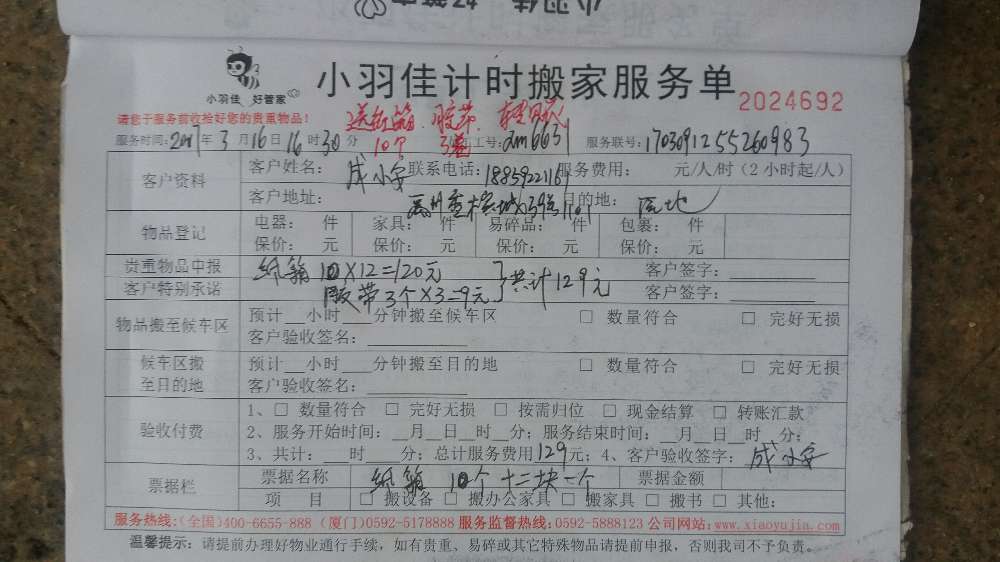 小羽佳计时搬家服务单
小羽佳 好管家
2024692
请您于服务前收检好您的贵重物品!
送纸箱 胶带
10个 3卷
服务时间: 年3月16日16时30分 工号: 服务联号:1703091255260983
客户资料
客户姓名: 成小字 联系电话: 服务费用: 元/人/时(2小时起/人)
客户地址: 目的地:
物品登记
电器: 件 家具: 件 易碎品: 件 包裹: 件
保价: 元 保价: 元 保价: 元 保价: 元
贵重物品申报 纸箱10×12=120元 客户签字:
客户特别承诺 胶带3个×3=9元 共计129元 客户签字:
物品搬至候车区
预计 小时 分钟搬至候车区 □ 数量符合 □ 完好无损
客户验收签名:
候车区搬至目的地
预计 小时 分钟搬至目的地 □ 数量符合 □ 完好无损
客户验收签名:
验收付费
1、□ 数量符合 □ 完好无损 □ 按需归位 □ 现金结算 □ 转账汇款
2、服务开始时间: 月 日 时 分; 服务结束时间: 月 日 时 分;
3、共计: 时 分; 总计服务费用129元; 4、客户验收签字: 成小字
票据栏
票据名称 纸箱10个十二块一个 票据金额
项 目 □ 搬设备 □ 搬办公家具 □ 搬家具 □ 搬书 □ 其他:
服务热线:(全国)400-6655-888 (厦门)0592-5178888 服务监督热线:0592-5888123 公司网站:www.xiaoyujia.com
温馨提示: 请提前办理好物业通行手续, 如有贵重、易碎或其它特殊物品请提前申报, 否则我司不予负责。